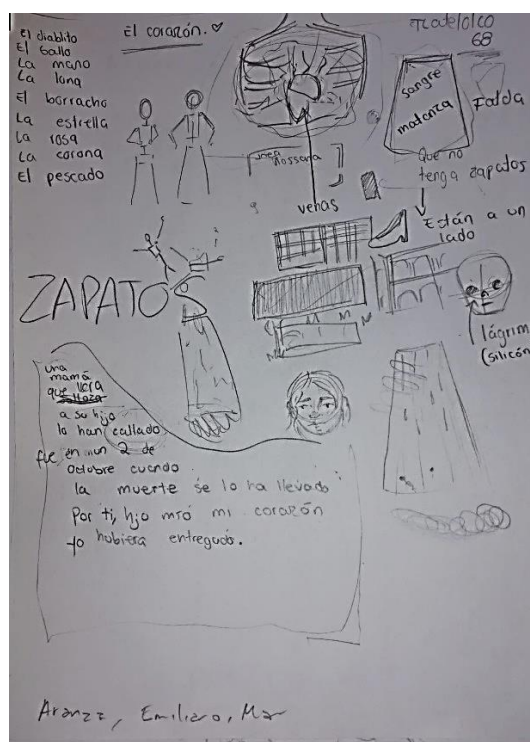 El diablito
El Gallo
La mano
La luna
El borracho
La estrella
La rosa
La corona
El pescado
El corazón.
Tlatelolco
68
sangre
matanza
Falda
Que no
tenga zapatos
Están a un
lado
venas
lágrim
(silicón
ZAPATO
una
mamá
que llora
a su hijo
lo han callado
fue en un 2 de
octubre cuando
la muerte se lo ha llevado
Por ti, hijo mío mi corazón
yo hubiera entregado.
Aranza, Emiliano, Mar